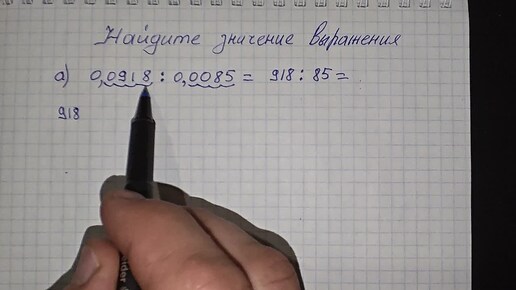 Найдите значение выражения
а) 0,0918 : 0,0085 = 918 : 85 =
918